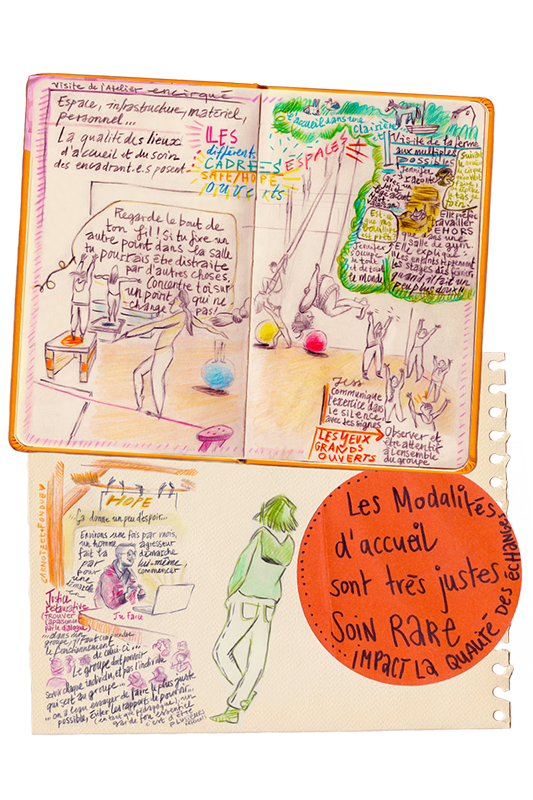 Visite de l'Atelier encirqué
Espace, infrastructure, matériel,
personnel...
La qualité des lieux
d'accueil et du soin
des encadrant.e.s posent
LES
différents
CADRES
SAFE/HOPE
ouverts
Regarde le bout de
ton fil! Si tu fixe un
autre point dans la salle
tu pourrais être distraite
par d'autres choses,
Concentre toi sur
un point qui ne
change pas!
L'accueil dans une
clairière
ESPACES
Visite de la ferme
aux multiples
possibles
Jennifer
raconte
Elle préfère
travailler
DEHORS
que dans une
salle de gym.
Elle explique
les stages des février
quand il fait un
peu plus doux!!
Jennifer
s'occupe
de tout
et de tout
le monde
Jess
communique
l'exercice dans
le silence,
avec des signes
LES YEUX
GRANDS
OUVERTS
Observer et
être attentif
à l'ensemble
du groupe
HOPE
Ça donne un peu d'espoir...
Environs une fois par mois,
un homme agresseur
fait la démarche
par lui-même
pour commencer
une
Je face
Justice
restaurative
trouver
par le dialogue
... dans un
groupe, il faut
le fonctionnement
de celui-ci...
Le groupe doit pouvoir
servir chaque individu, et pas l'individu
qui sert au groupe...
... on a le essayer de faire le plus juste
possible, éviter les rapports de pouvoir...
c'est d'être
plusieurs
Les Modalités
d'accueil
sont très justes
SOIN RARE
IMPACT LA QUALITÉ DES ÉCHANGES